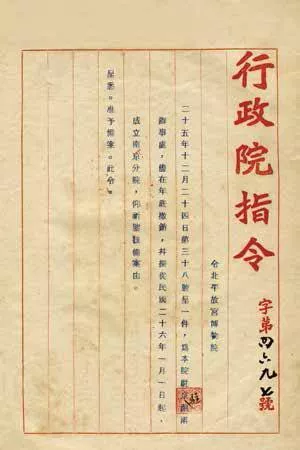 行政院指令
字第四六九七號
令北平故宮博物院
二十五年十二月二十四日第三十八號呈一件，爲本院駐滬兩
辦事處，儘在年底撤銷，并擬從民國二十六年一月一日起，
成立南京分院，仰祈鑒核備案由。
呈悉。准予備案。此令。